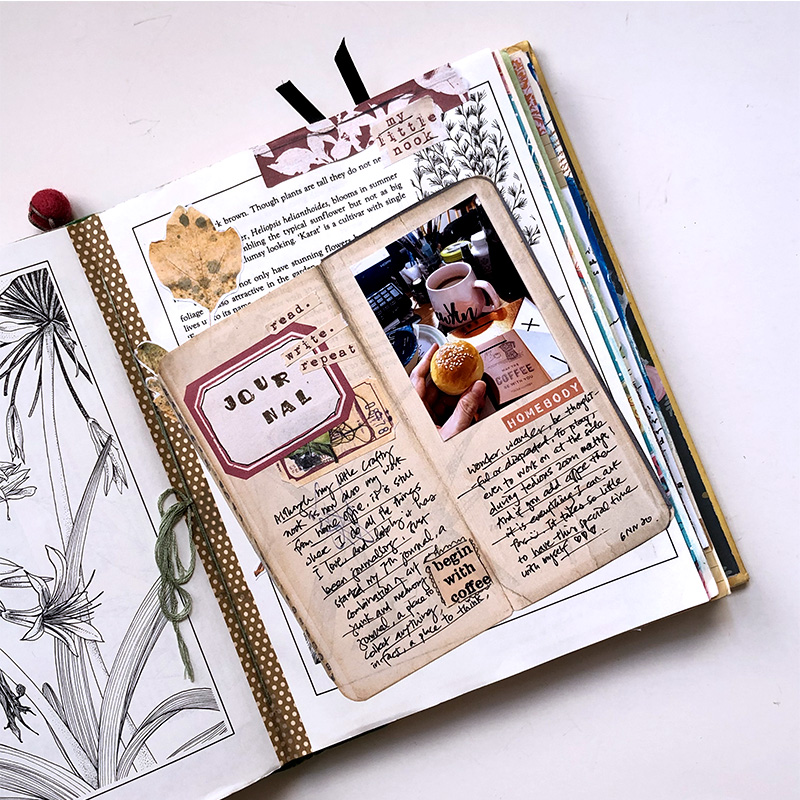 my
little
nook
k brown. Though plants are tall they do not ne
er, Heliopsis helianthoides, blooms in summer
mbling the typical sunflower but not as big
lumsy looking. 'Karat' is a cultivar with single
not only have stunning flowers
foliage also attractive in the garde
lives up to its name
read.
write.
repeat
JOUR
NAL
Although my little crafty
nook is now also my work
from home office it's still
where I do all the things
I love and lately it has
been journalling. I just
started my 7th journal, a
combination of art
junk and memory
journal. a place to
collect anything.
in fact, a place to think.
begin
with
coffee
COFFEE
BE WITH YOU
HOMEBODY
Wonder, wander, be thought-
ful or disparaded to play,
even to work on at the side
during tedious zoom meetings!
And if you add coffee then
it is everything I can ask
for. It takes so little
to have this special time
with myself.
6 Nov 20